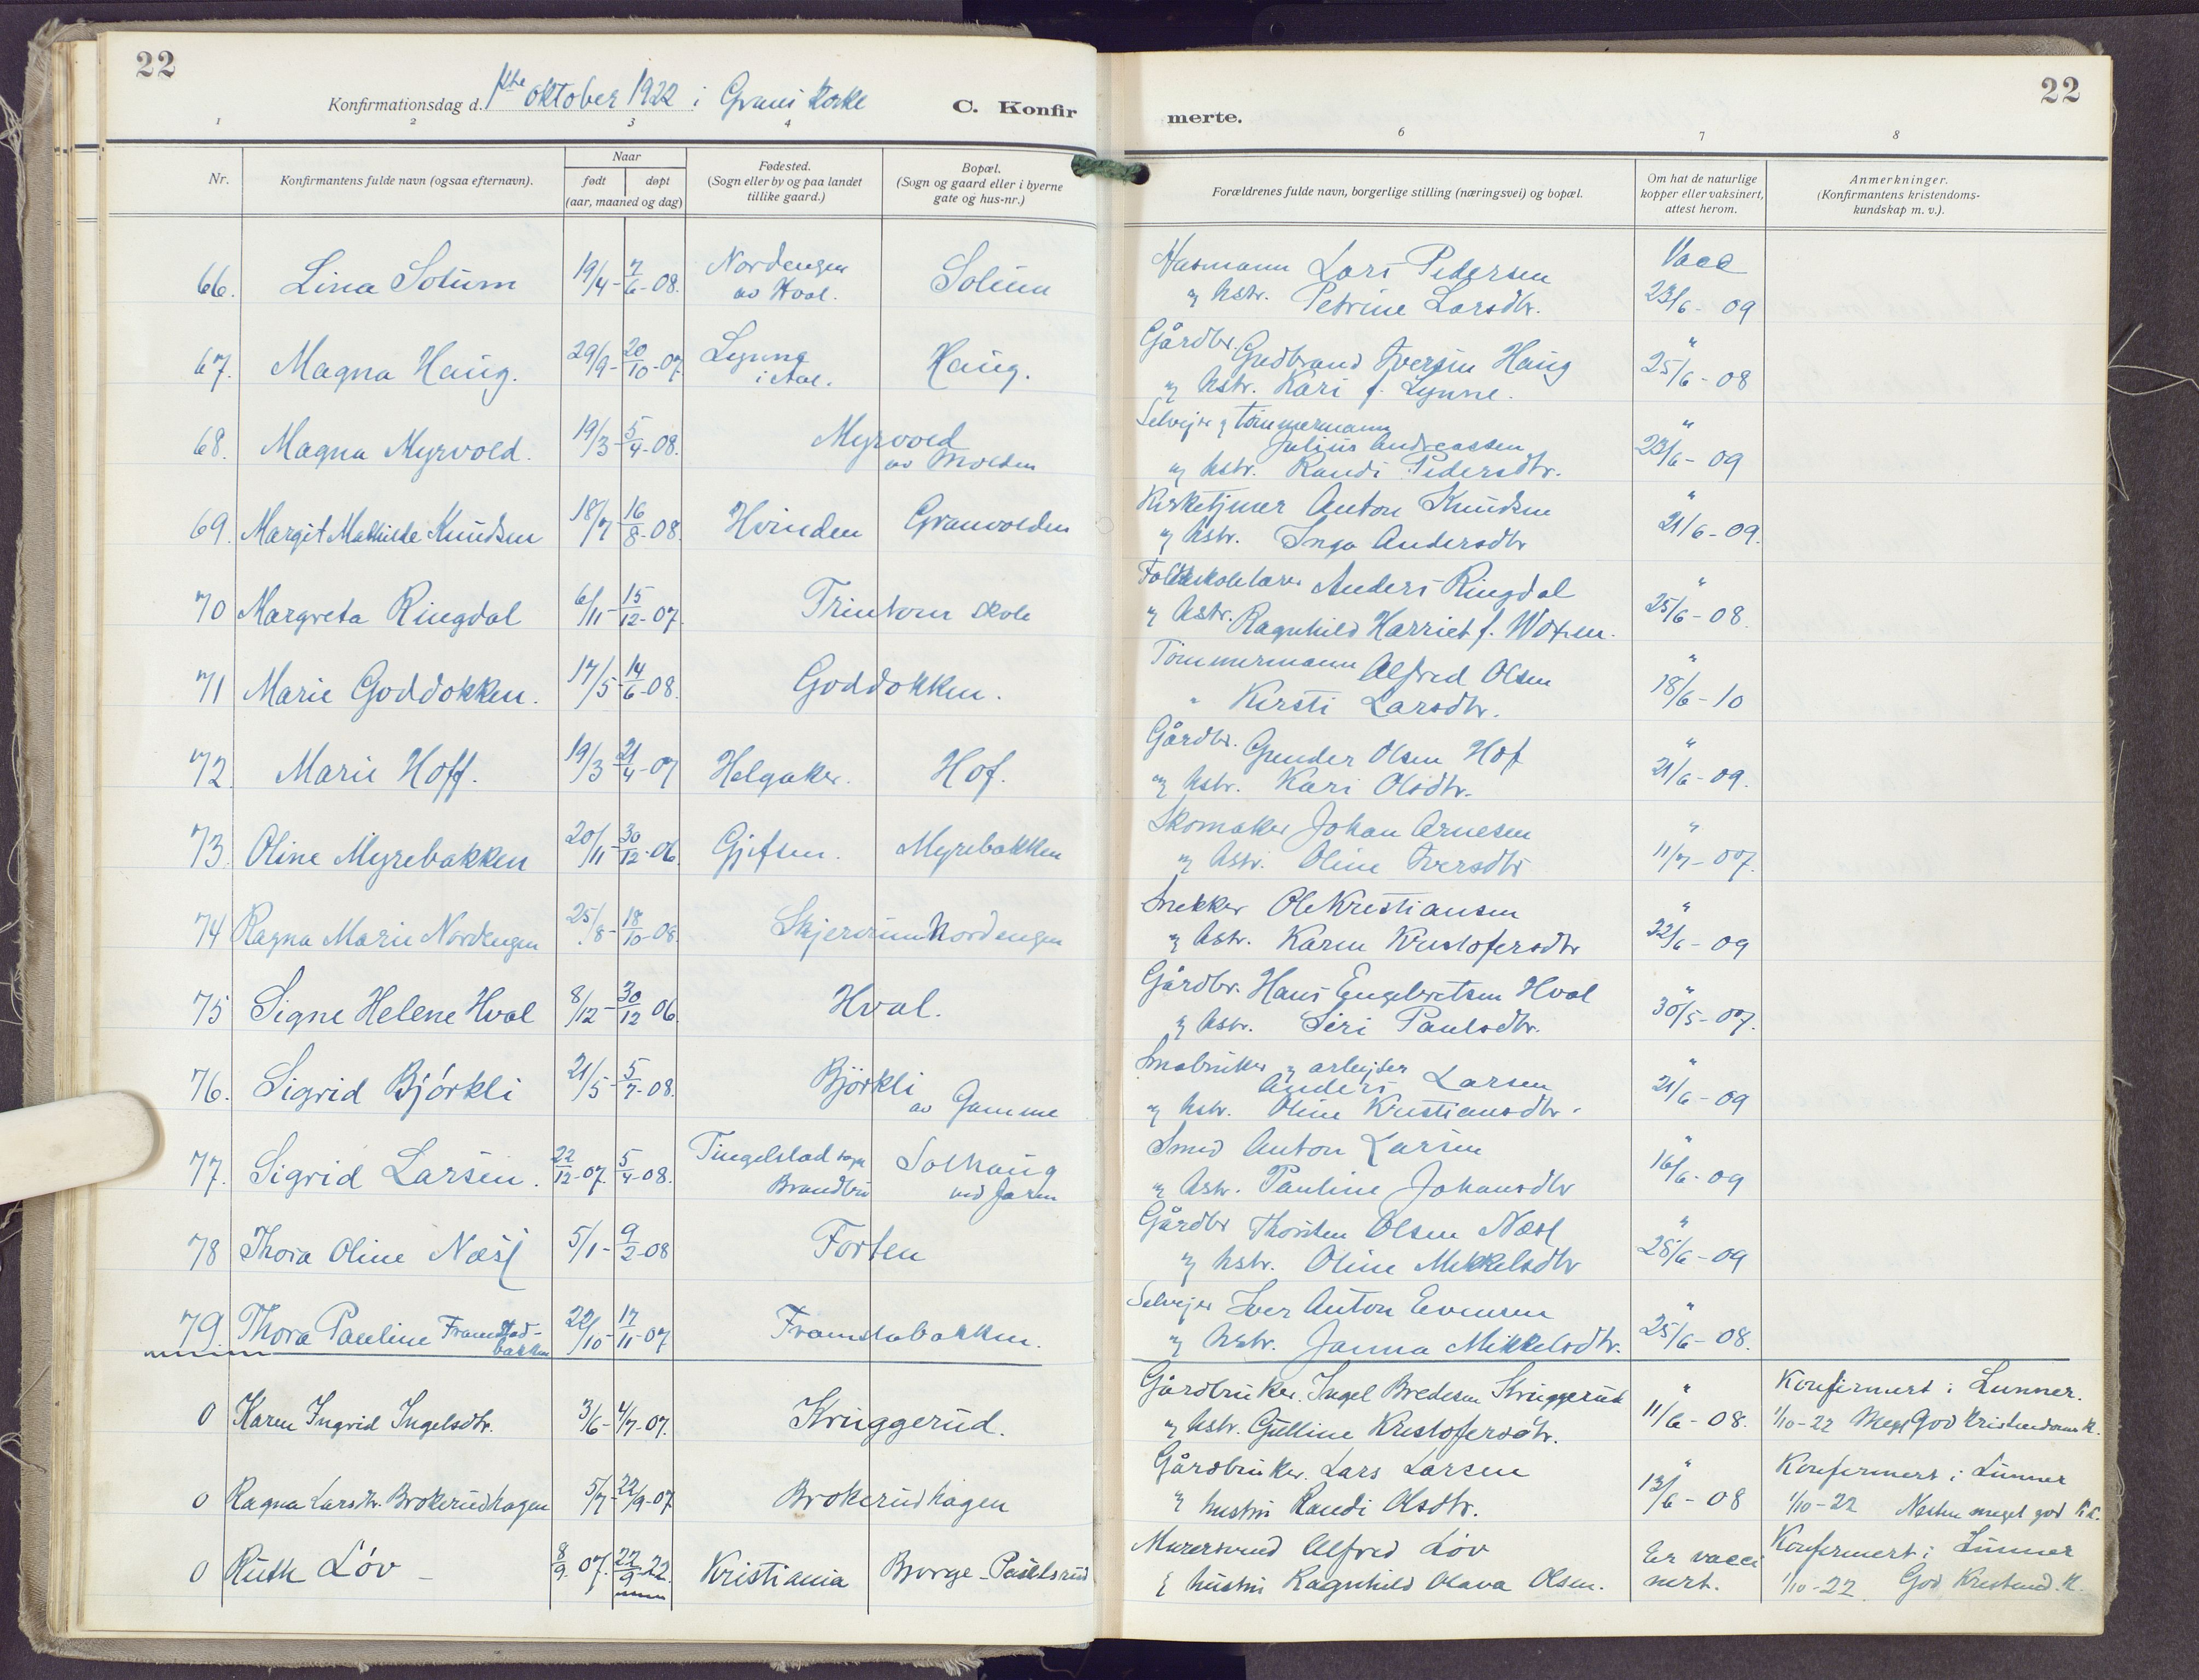 22
Konfirmationsdag d. 1ste oktober 1922 i Grans kirke
C. Konfir
1 2 3 4
Nr.
Konfirmantens fulde navn (ogsaa efternavn).
Naar
født døpt
(aar, maaned og dag)
Fødested.
(Sogn eller by og paa landet
tillike gaard.)
Bopæl.
(Sogn og gaard eller i byerne
gate og hus-nr.)
66. Lina Solum 19/4 - 7/6 - 08. Nordengen
av Hval. Solum
67. Magna Haug. 29/9 - 20/10 - 07 Lynne
i Aal. Haug.
68. Magna Myrvold. 19/3 - 5/4 - 08. Myrvold
av Molden
69. Margit Mathilde Knudsen 18/7 - 16/8 - 08. Hvinden Granvolden
70 Margreta Ringdal 6/11 - 15/12 - 07. Trintom skole
71 Marie Goddokken. 17/5 - 14/6 - 08. Goddokken.
72. Marie Hoff. 19/3 21/4 - 07 Helgaker. Hof.
73. Oline Myrebakken 20/11 - 30/12 - 06. Gjefsen. Myrebakken
74 Ragna Marie Nordengen 25/8 - 18/10 - 08. Skjervum Nordengen
75 Signe Helene Hval 8/12 - 30/12 06. Hval.
76. Sigrid Björkli 21/5 - 5/7 - 08. Björkli
av Gamme
77. Sigrid Larsen. 22/12 - 07. 5/4 - 08. Tingelstad sogn
Brandbu Solhaug
ved Jaren
78 Thora Oline Næss 5/1 - 9/2 - 08 Forten
79. Thora Pauline Framstad-
bakken 22/10 - 17/11 - 07 Framstabakken.
0 Karen Ingrid Ingelsdtr. 3/6 - 4/7 - 07. Kruggerud.
0 Ragna Larsdtr. Brokerudhagen 5/7 - 22/9 - 07 Brokerudhagen
0 Ruth Löv 8/9 07. 22/9 - 22. Kristiania Bjorge
22
merte.
6 7 8
Forældrenes fulde navn, borgerlige stilling (næringsvei) og bopæl.
Om hat de naturlige
kopper eller vaksinert,
attest herom.
Anmerkninger.
(Konfirmantens kristendoms-
kundskap m. v.).
Husmann Lars Pedersen
og hstr. Petrine Larsdtr.
Vacc
23/6 - 09
Gårdbr. Gudbrand Iversen Haug
og hstr. Kari f. Lynne.
" 25/6 - 08
Selveijer og tömmermann
Julius Andreassen
og hstr. Randi Pedersdtr.
" 23/6 - 09
Kirketjener Anton Knudsen
og hstr. Inga Andersdtr
" 21/6 - 09.
Folkeskolelærer Anders Ringdal
og hstr. Ragnhild Harriet f. Woxen.
" 25/6 - 08.
Tömmermann Alfred Olsen
" Kirsti Larsdtr.
" 18/6 - 10
Gårdbr. Gunder Olsen Hof
og hstr. Kari Olsdtr.
" 21/6 - 09.
Skomaker Johan Arnesen
og hstr. Oline Iversdtr
" 11/7 - 07.
Snekker Ole Kristiansen
og hstr. Karen Kristofersdtr
" 22/6 - 09
Gårdbr. Hans Engebretsen Hval
og hstr. Siri Paulsdtr.
" 30/5 - 07.
Småbruker og arbeijder
Anders Larsen
og hstr. Oline Kristiansdtr.
" 21/6 - 09
Smed Anton Larsen
og hstr. Pauline Johansdtr
" 16/6 - 09
Gårdbr Thorsten Olsen Næss
og hstr. Oline Mikkelsdtr
" 28/6 - 09
Selveijer Iver Anton Evensen
og hstr. Janna Mikkelsdtr.
" 25/6 - 08.
Gårdbruker. Ingel Bredesen Kruggerud
og hstr. Gulline Kristofersdtr.
" 11/6 - 08.
Konfirmert i Lunner.
1/10 - 22 Meget god kristendoms k.
Gårdbruker. Lars Larsen
og hustru Randi Olsdtr.
" 13/6 - 08
Konfirmert i Lunner
1/10 - 22 Nesten meget god k.k.
Murersvend Alfred Löv
& hustru Ragnhild Olava Olsen.
Er vacci
nert.
Konfirmert i Lunner
1/10 - 22. God Kristend. k.